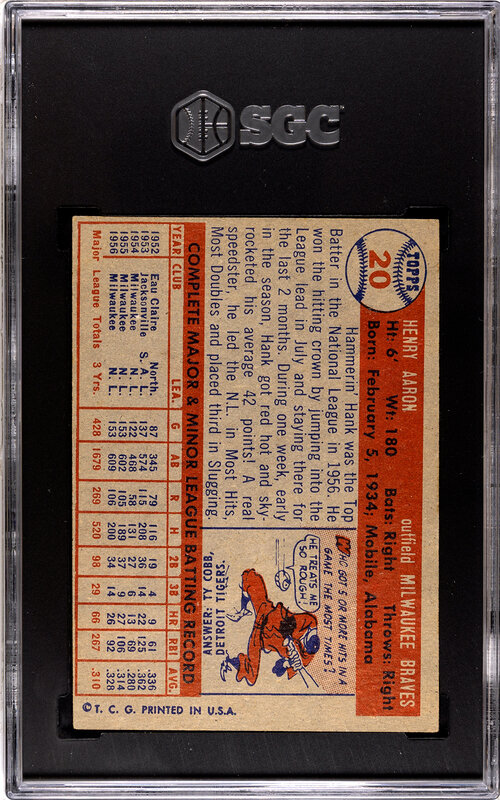 SGC
TOPPS
20
HENRY AARON
outfield MILWAUKEE BRAVES
Ht: 6' Wt: 180 Bats: Right Throws: Right
Born: February 5, 1934; Mobile, Alabama
Hammerin' Hank was the Top
Batter in the National League in 1956. He
won the hitting crown by jumping into the
League lead in July and staying there for
the last 2 months. During one week, early
in the season, Hank got red hot and sky-
rocketed his average 42 points! A real
speedster, he led the N.L. in Most Hits,
Most Doubles and placed third in Slugging
WHO GOT 5 OR MORE HITS IN A
GAME THE MOST TIMES?
HE TREATS ME
SO ROUGH!
ANSWER: TY COBB,
DETROIT TIGERS.
COMPLETE MAJOR & MINOR LEAGUE BATTING RECORD
YEAR CLUB LEA. G AB R H 2B 3B HR RBI AVG.
1952 Eau Claire North. 87 345 79 116 19 4 9 61 .336
1953 Jacksonville S. A. L. 137 574 115 208 36 14 22 125 .362
1954 Milwaukee N. L. 122 468 58 131 27 6 13 69 .280
1955 Milwaukee N. L. 153 602 105 189 37 9 27 106 .314
1956 Milwaukee N. L. 153 609 106 200 34 14 26 92 .328
Major League Totals 3 Yrs. 428 1679 269 520 98 29 66 267 .310
© T. C. G. PRINTED IN U.S.A.